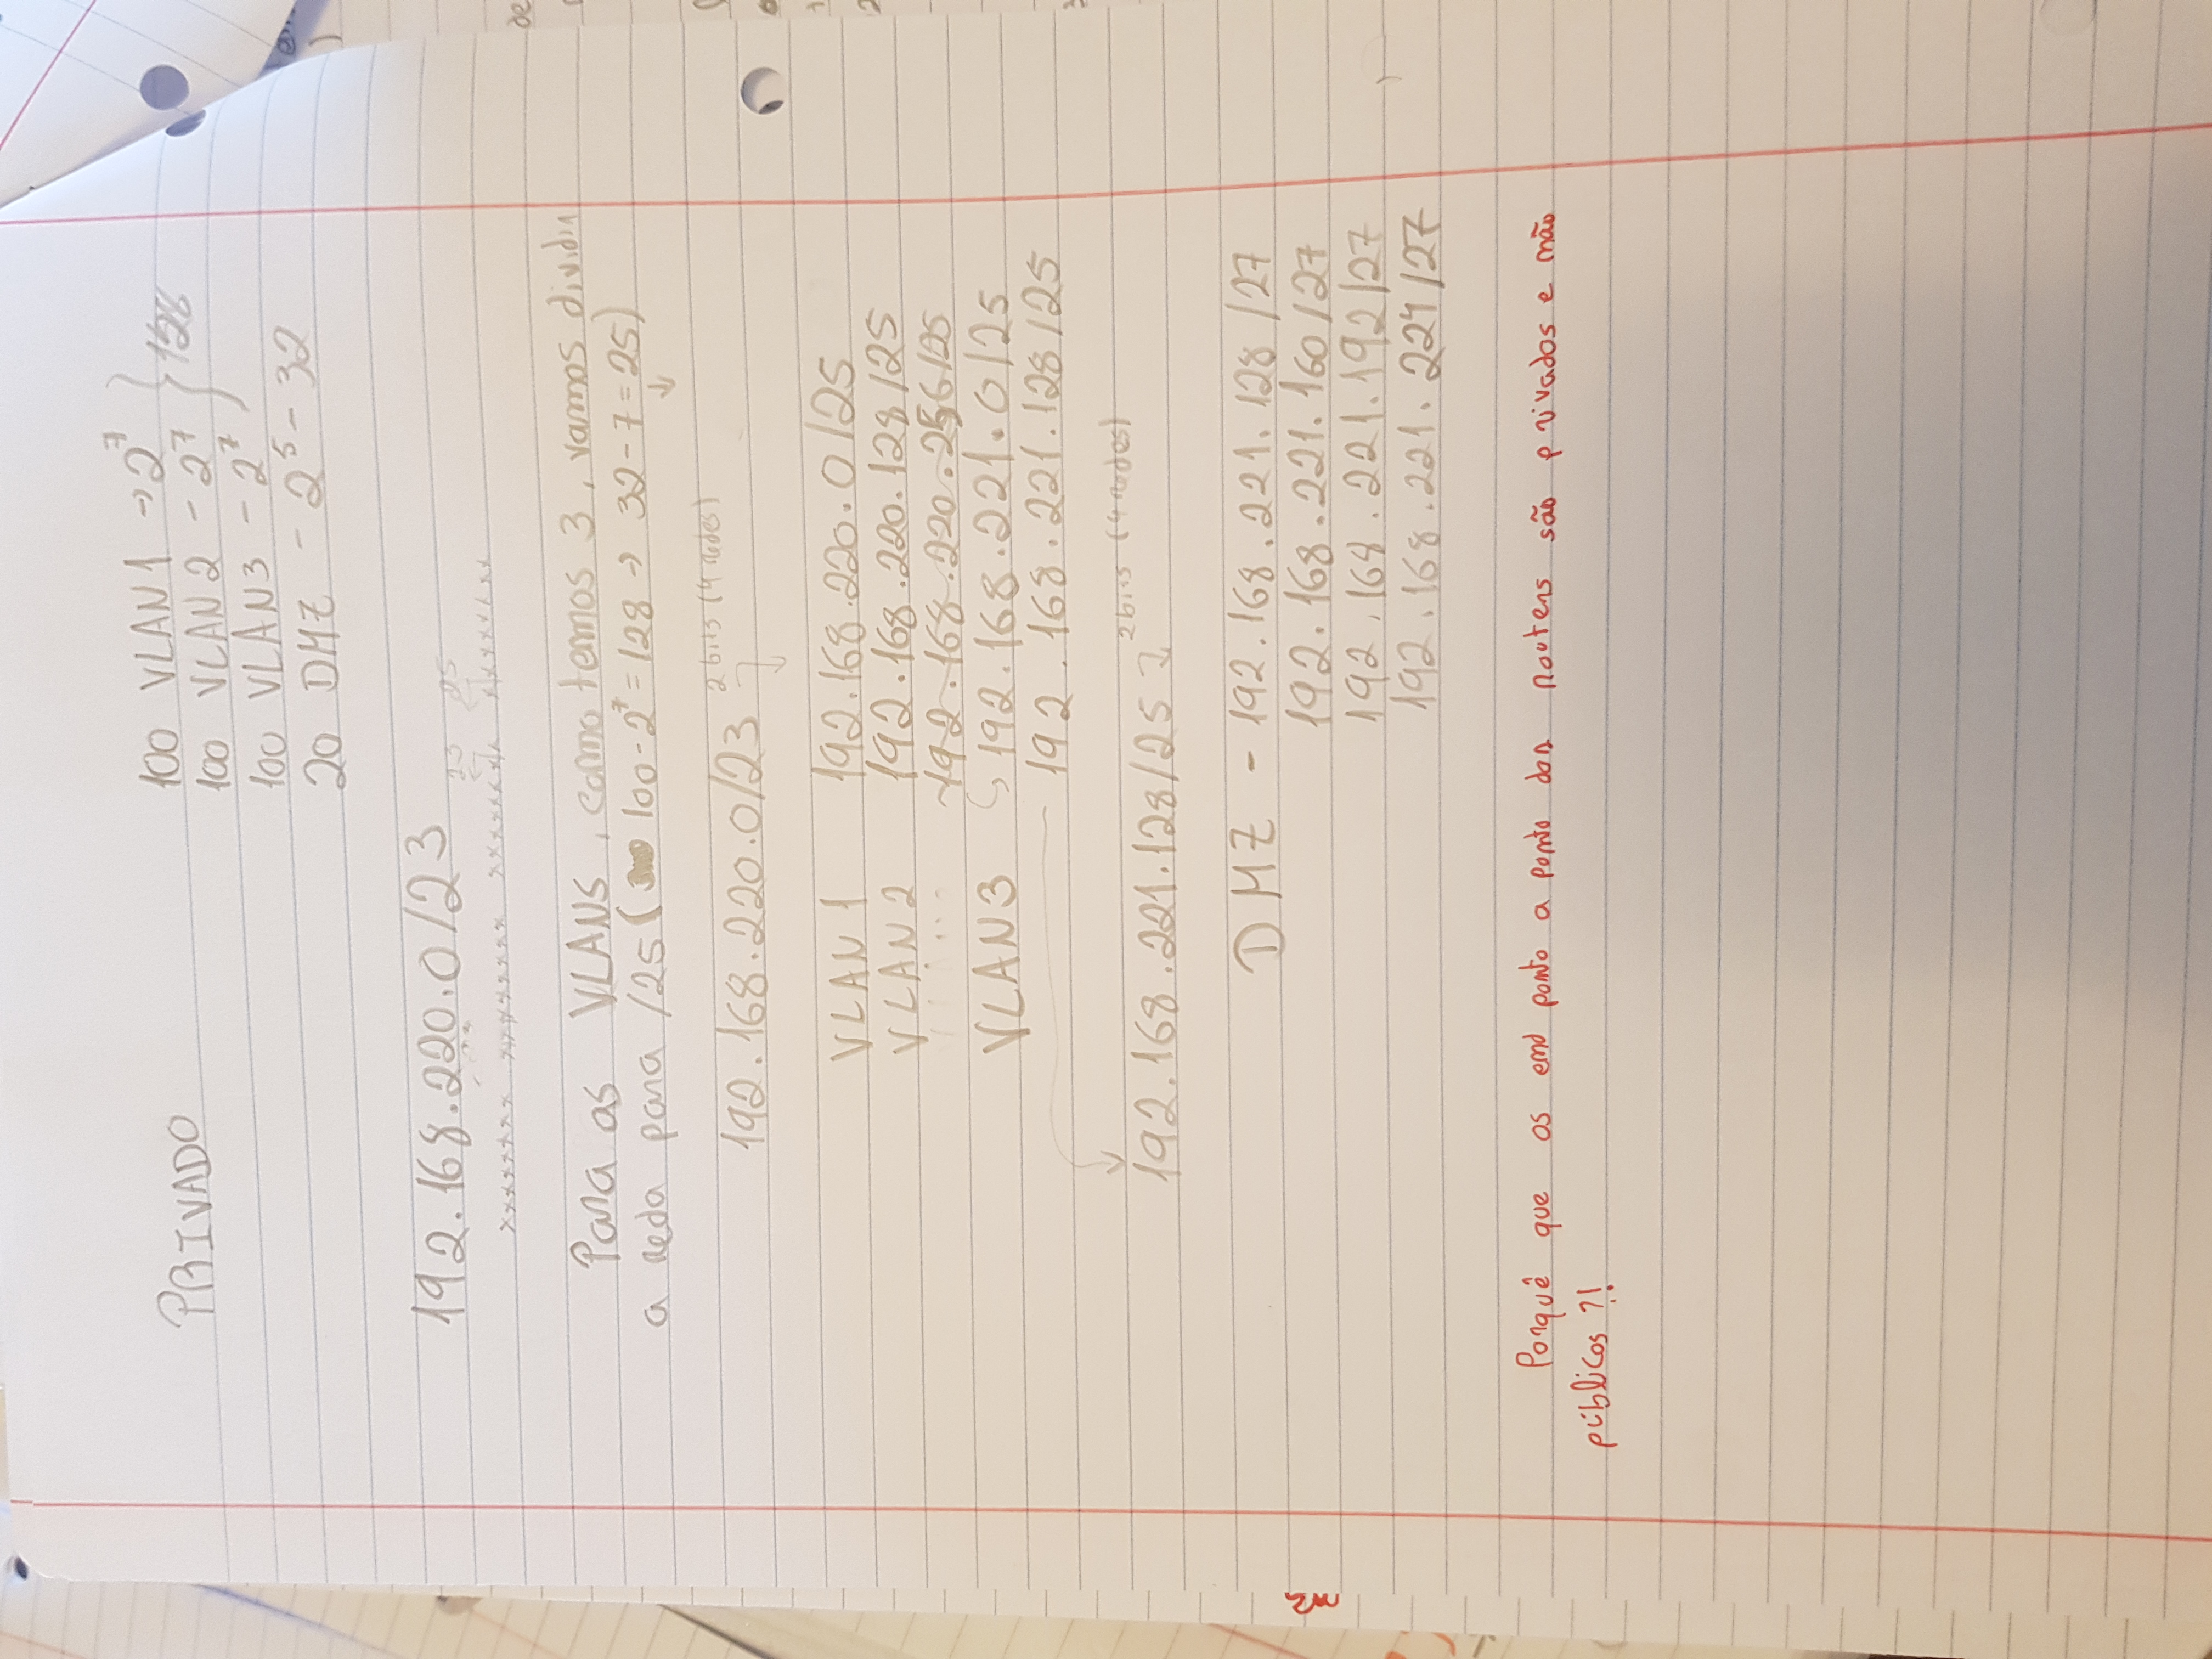 PRIVADO
100 VLAN1 → 2^7 } 128
100 VLAN2 - 2^7
100 VLAN3 - 2^7
20 DMZ - 2^5 - 32
192.168.220.0/23
23 25
xxxxxxxx xxxxxxxx xxxxxxxx xxxxxxxx
Para as VLANS, como temos 3, vamos dividir
a rede para /25 ( 100 - 2^7 = 128 → 32 - 7 = 25)
192.168.220.0/23 2 bits (4 redes)
VLAN 1 192.168.220.0/25
VLAN 2 192.168.220.128/25
192.168.220.256/25
VLAN3 192.168.221.0/25
192.168.221.128/25
192.168.221.128/25 2 bits (4 redes)
DMZ - 192.168.221.128/27
192.168.221.160/27
192.168.221.192/27
192.168.221.224/27
Porquê que os end ponto a ponto dos routers são privados e não
públicos ?!